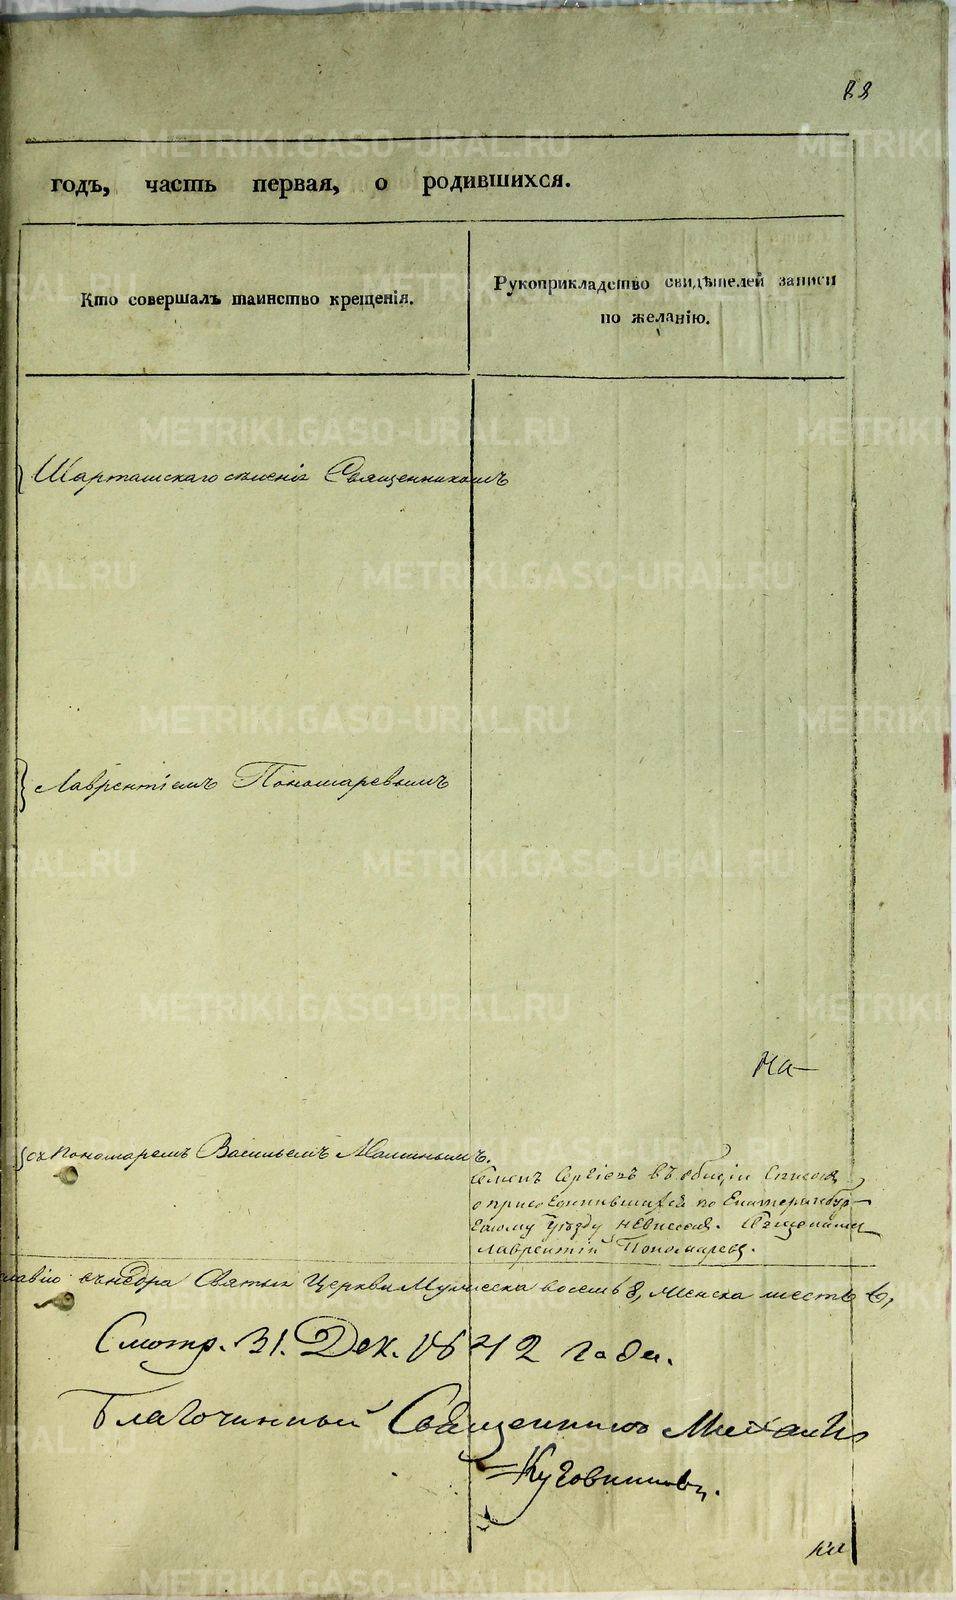 88
годъ, часть первая, о родившихся.
Кто совершалъ таинство крещенія.
Рукоприкладство свидѣтелей записи
по желанію.
Шарташскаго селенія Священникомъ
Лаврентіемъ Пономаревымъ
На-
съ Пономаремъ Васильемъ
Сергіевъ въ общій Списокъ
о присоединившихся по Екатеринбур-
скому уѣзду невнесенъ. Священникъ
Лаврентій Пономаревъ.
въ нѣдра Святыя Церкви Мужеска восемь 8, Женска шесть 6,
Смотр. 31. Дек. 1842 года.
Благочинный Священникъ Михаилъ
METRIKI.GASO-URAL.RU